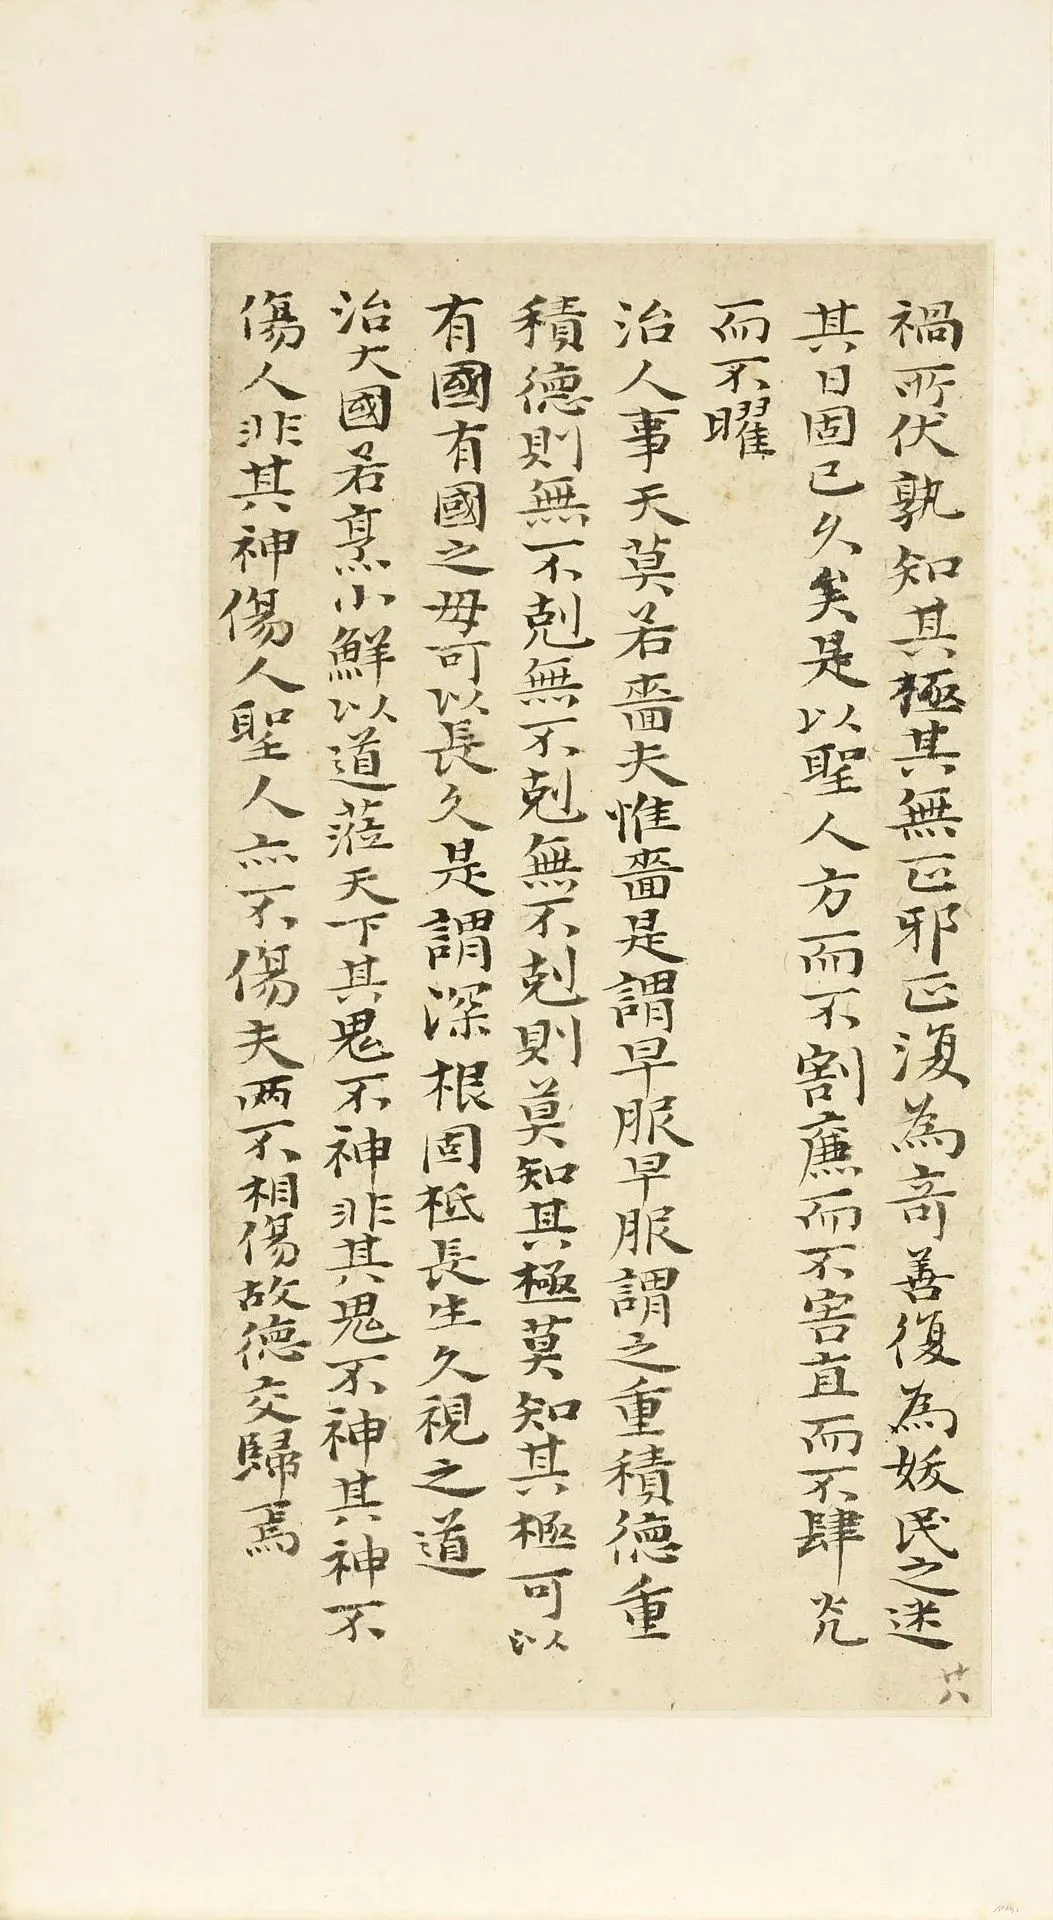 禍所伏孰知其極其無正邪正復為奇善復為妖民之迷
其日固已久矣是以聖人方而不割廉而不害直而不肆光
而不曜
治人事天莫若嗇夫惟嗇是謂早服早服謂之重積德重
積德則無不剋無不剋無不剋則莫知其極莫知其極可以
有國有國之母可以長久是謂深根固柢長生久視之道
治大國若烹小鮮以道蒞天下其鬼不神非其鬼不神其神不
傷人非其神傷人聖人亦不傷夫兩不相傷故德交歸焉
廿八